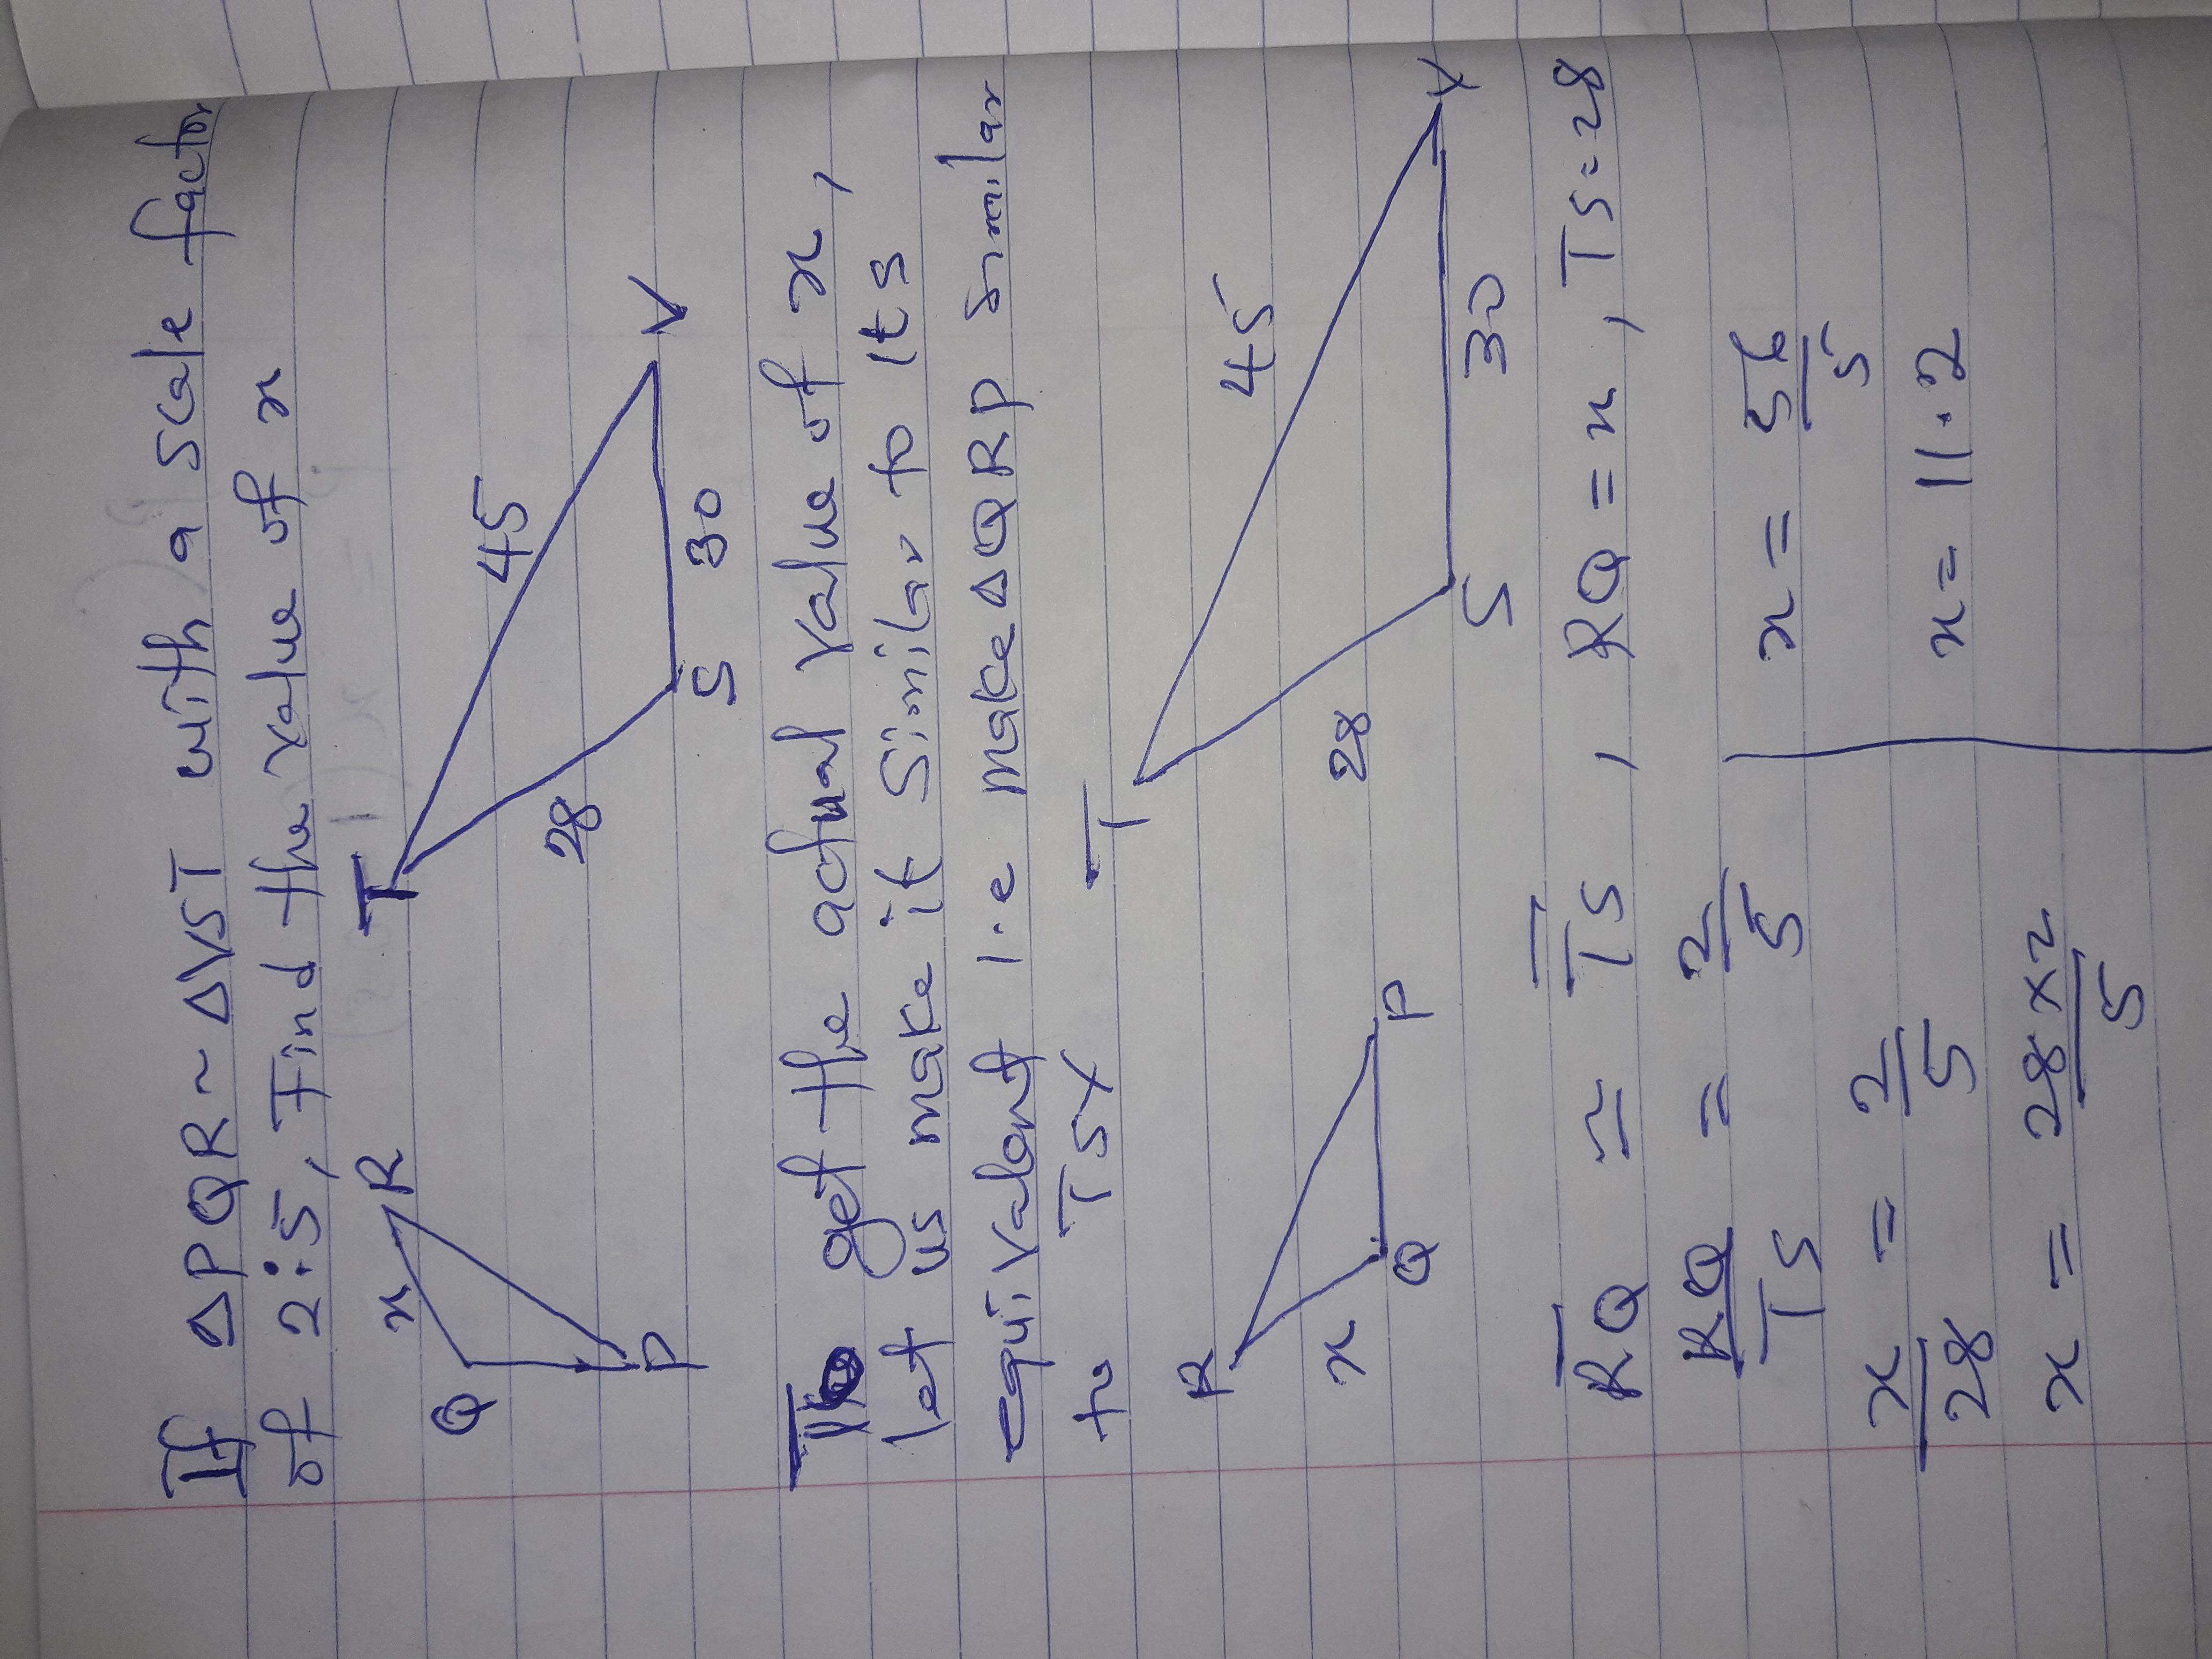 If ΔPQR ~ ΔVST with a scale factor
of 2:5, Find the value of x
T
Q x R
45
28
P
S 30 V
To get the actual value of x,
let us make it similar to its
equivalent i.e make ΔQRP similar
to TSV
T
R
45
x
28
Q P
S 30 V
RQ ≃ TS , RQ = x, TS = 28
RQ/TS = 2/5
x/28 = 2/5
x = 28×2/5
x = 56/5
x = 11.2